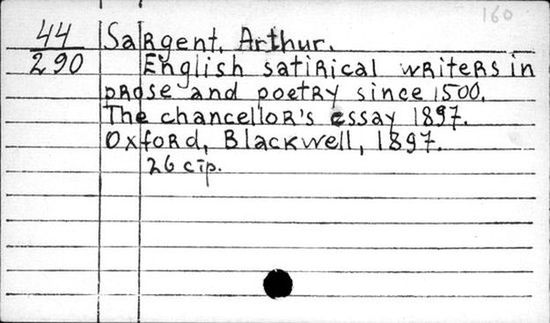 160
44 Sargent, Arthur.
290 English satirical writers in
prose and poetry since 1500.
The chancellor's essay 1897.
Oxford, Blackwell, 1897.
26 стр.